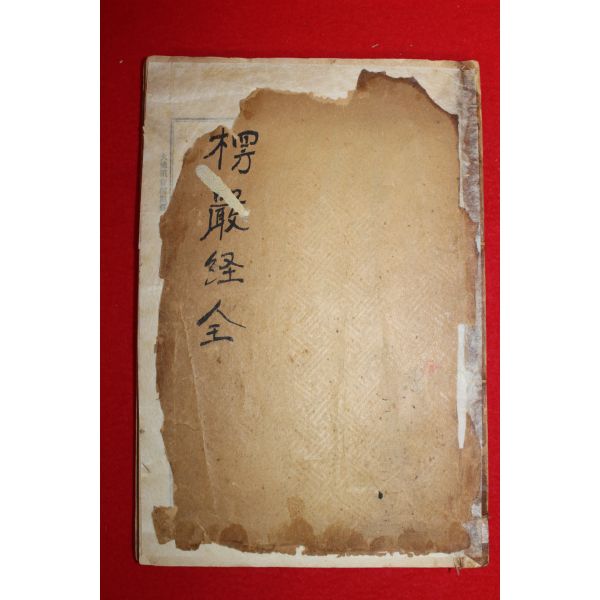 楞嚴経全